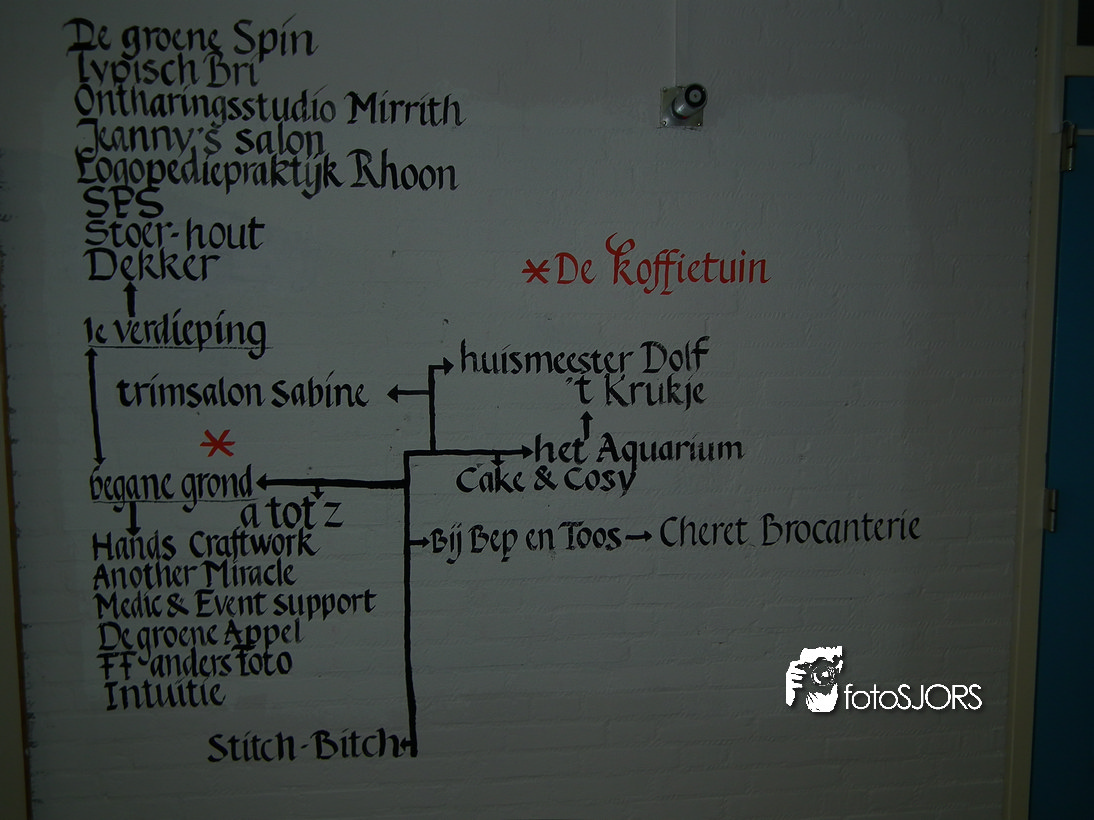 De groene Spin
Typisch Bri
Ontharingsstudio Mirrith
Jeanny's salon
Logopediepraktijk Rhoon
SPS
Stoer-hout
Dekker
*De Koffietuin
1e verdieping
huismeester Dolf
trimsalon Sabine
't Krukje
*
het Aquarium
begane grond
Cake & Cosy
a tot z
Bij Bep en Toos
Cheret Brocanterie
Hands Craftwork
Another Miracle
Medic & Event support
De groene Appel
FF-anders foto
Intuitie
fotoSJORS
Stitch-Bitch